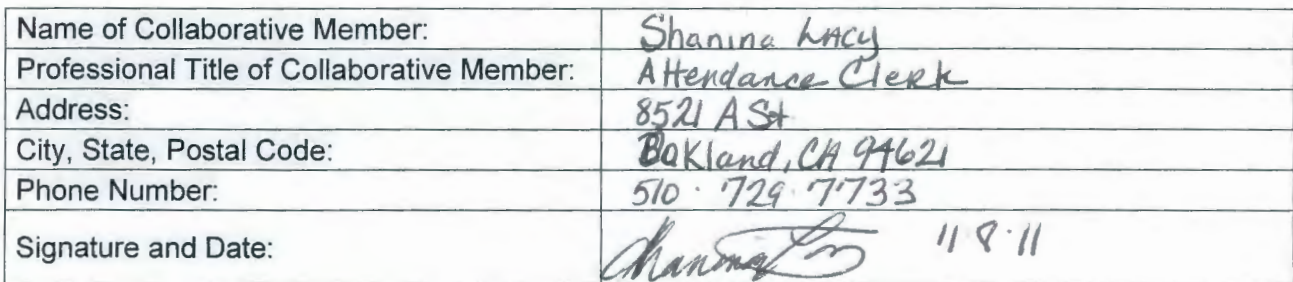 Name of Collaborative Member: Shanina Lacy
Professional Title of Collaborative Member: Attendance Clerk
Address: 8521 A St
City, State, Postal Code: Oakland, CA 94621
Phone Number: 510 · 729 · 7733
Signature and Date: Shanina 11·8·11